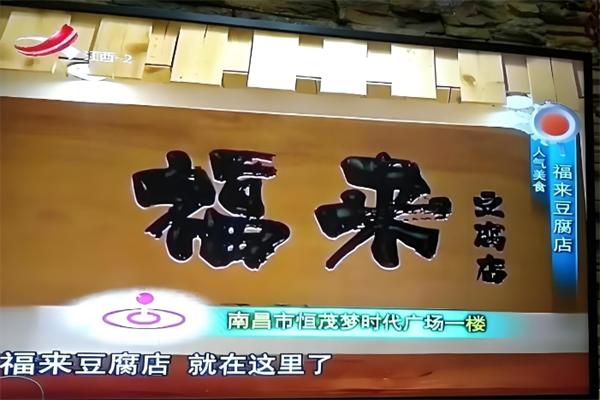 江西·2
人气美食
福来豆腐店
福来
豆腐店
南昌市恒茂梦时代广场一楼
福来豆腐店 就在这里了